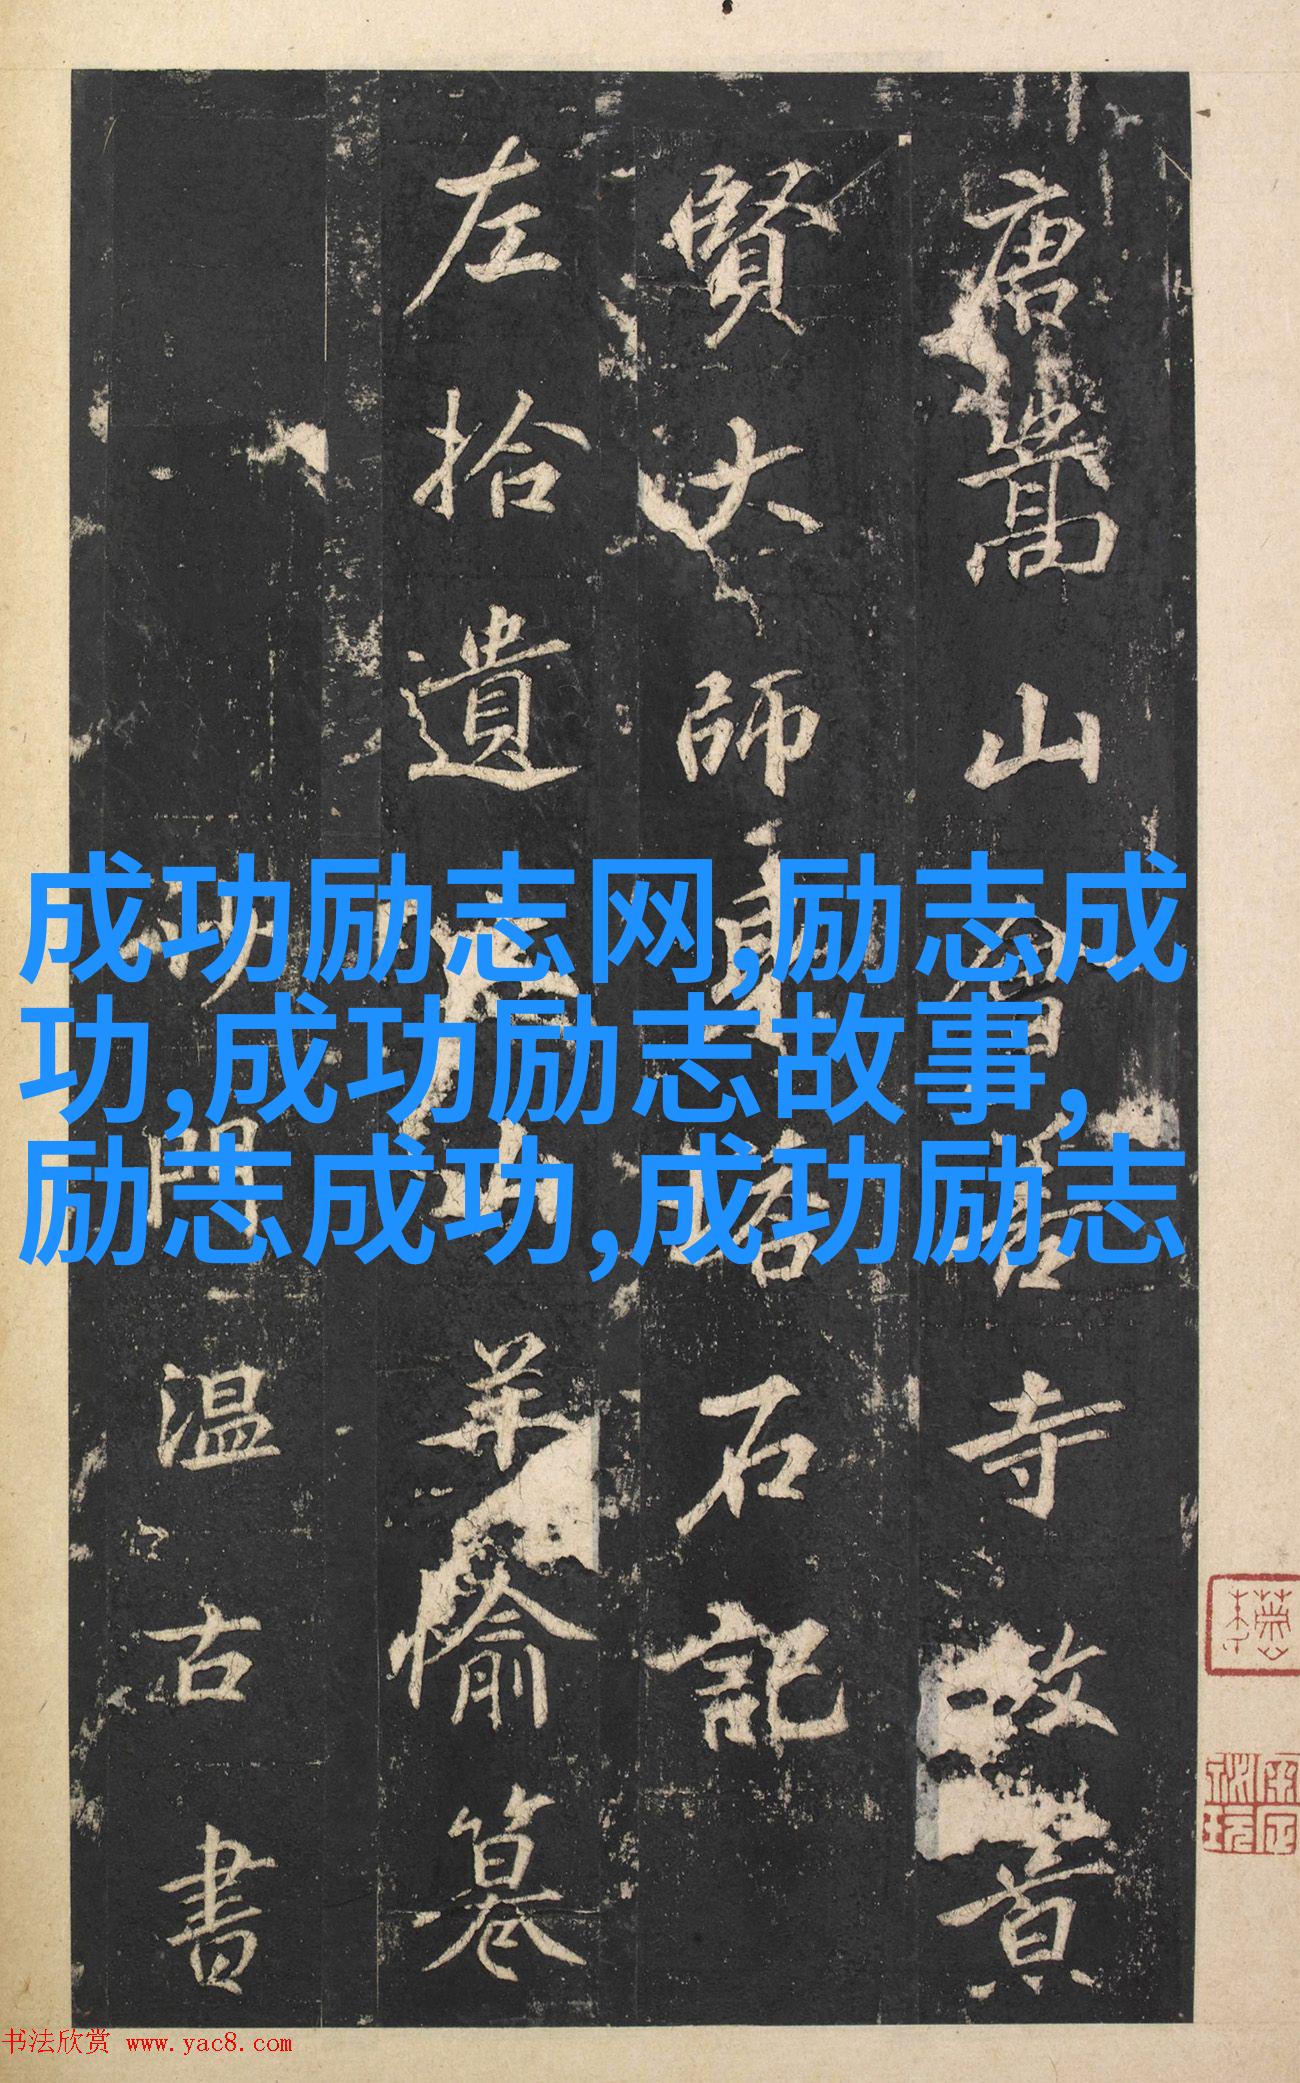 唐嵩山會善寺故景
賢大師身塔石記
左拾遺山羊愉
沙門温古書
成功励志网,励志成
功,成功励志故事,
励志成功,成功励志
书法欣赏 www.yac8.com